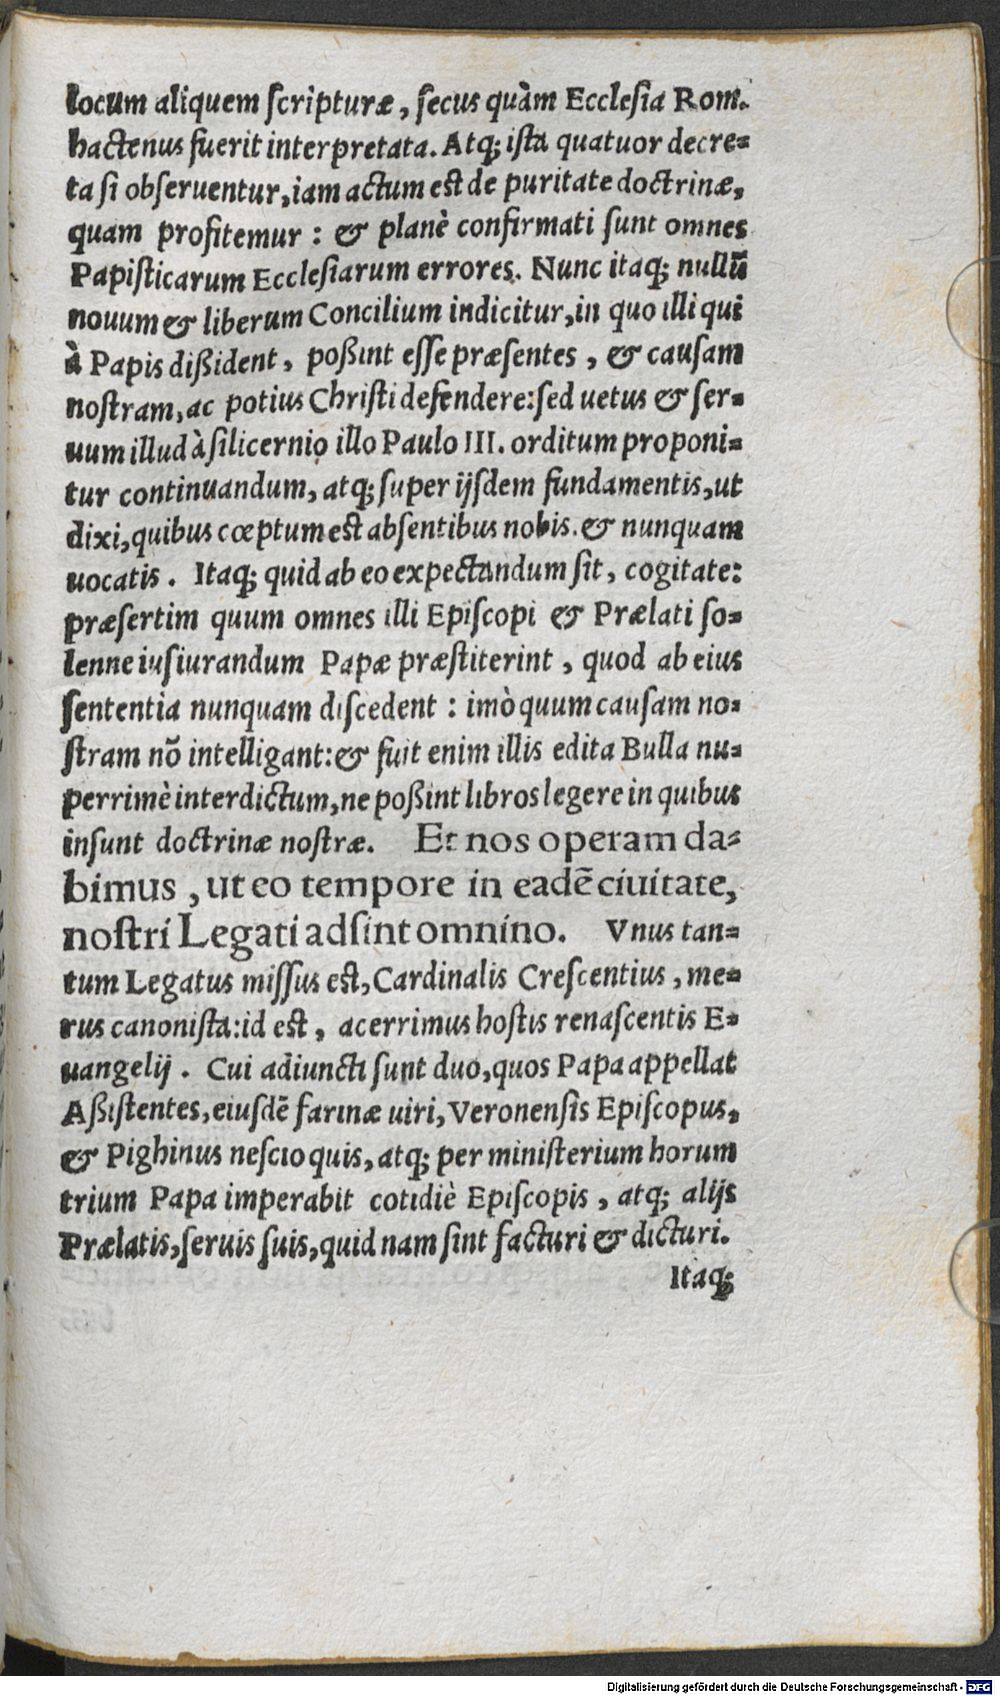 locum aliquem ſcripturæ, ſecus quàm Ecclesia Rom.
hactenus fuerit interpretata. Atq; iſta quatuor decre-
ta ſi obſeruentur, iam actum eſt de puritate doctrinæ,
quam profitemur : & planè confirmati ſunt omnes
Papiſticarum Eccleſiarum errores. Nunc itaq; nullũ
nouum & liberum Concilium indicitur, in quo illi qui
à Papis dißident, poßint eſſe præſentes, & cauſam
noſtram, ac potius Chriſti defendere: ſed uetus & ſer-
uum illud à ſilicernio illo Paulo III. orditum proponi-
tur continuandum, atq; ſuper ijſdem fundamentis, ut
dixi, quibus cœptum eſt abſentibus nobis. & nunquam
uocatis. Itaq; quid ab eo expectandum ſit, cogitate:
præſertim quum omnes illi Epiſcopi & Prælati ſo-
lenne iuſiurandum Papæ præſtiterint, quod ab eius
ſententia nunquam diſcedent : imò quum cauſam no-
ſtram nõ intelligant: & fuit enim illis edita Bulla nu-
perrimè interdictum, ne poßint libros legere in quibus
inſunt doctrinæ noſtræ. Et nos operam da-
bimus, ut eo tempore in eadẽ ciuitate,
noſtri Legati adſint omnino. Vnus tan-
tum Legatus miſſus eſt, Cardinalis Creſcentius, me-
rus canoniſta: id eſt, acerrimus hoſtis renaſcentis E-
uangelij. Cui adiuncti ſunt duo, quos Papa appellat
Aßiſtentes, eiuſdẽ farinæ uiri, Veronenſis Epiſcopus,
& Pighinus neſcio quis, atq; per miniſterium horum
trium Papa imperabit cotidiè Epiſcopis, atq; alijs
Prælatis, ſeruis ſuis, quid nam ſint facturi & dicturi.
Itaq;
Digitalisierung gefördert durch die Deutsche Forschungsgemeinschaft - DFG